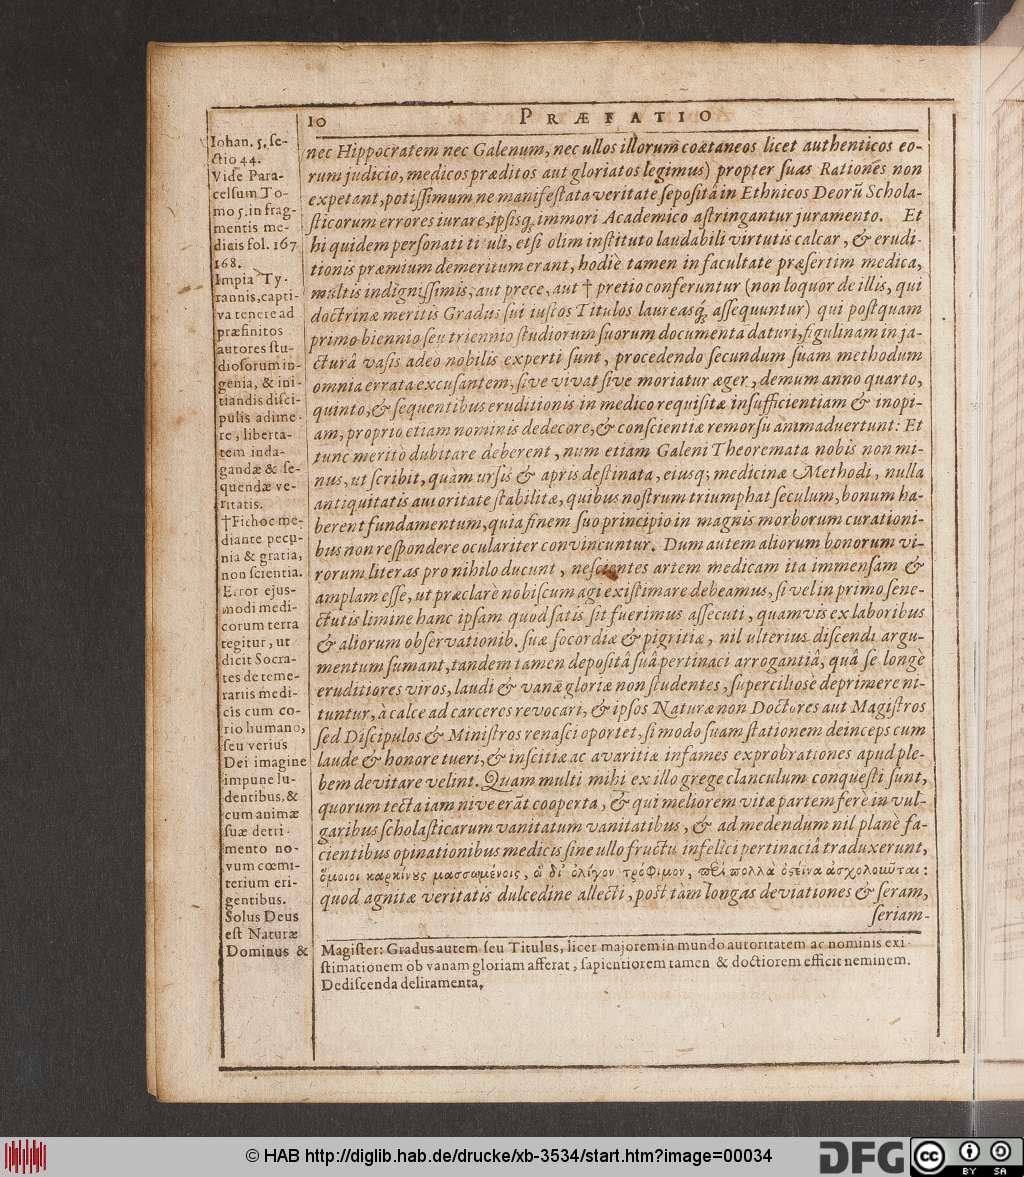 10
PRÆFATIO
Iohan. 5. se-
ctio 44.
Vide Para-
celsum To-
mo 5. in frag-
mentis me-
dicis fol. 167
168.
Impia Ty-
rannis, capti-
va tenere ad
præfinitos
autores stu-
diosorum in-
genia, & ini-
tiandis disci-
pulis adime-
re, liberta-
tem inda-
gandæ & se-
quendæ ve-
ritatis.
†Fit hoc me-
diante pecu-
nia & gratia,
non scientia.
Error ejus-
modi medi-
corum terra
tegitur, ut
dicit Socra-
tes de teme-
rariis medi-
cis cum co-
rio humano,
seu verius
Dei imagine
impune lu-
dentibus, &
cum animæ
suæ detri-
mento no-
vum cœmi-
terium eri-
gentibus.
Solus Deus
est Naturæ
Dominus &
nec Hippocratem nec Galenum, nec ullos illorum coætaneos licet authenticos eo-
rum judicio, medicos præditos aut gloriatos legimus) propter suas Rationes non
expetant, potissimum ne manifestata veritate sepositâ in Ethnicos Deorũ Schola-
sticorum errores iurare, ipsisq; immori Academico astringantur juramento. Et
hi quidem personati tituli, etsi olim instituto laudabili virtutis calcar, & erudi-
tionis præmium demeritum erant, hodie tamen in facultate præsertim medica,
multis indignissimis, aut prece, aut † pretio conferuntur (non loquor de illis, qui
doctrinæ meritis Gradus sui iustos Titulos laureasq; assequuntur) qui postquam
primo biennio seu triennio studiorum suorum documenta daturi, figulinam in ja-
cturâ vasis adeo nobilis experti sunt, procedendo secundum suam methodum
omnia errata excusantem, sive vivat sive moriatur æger, demum anno quarto,
quinto, & sequentibus eruditionis in medico requisitæ insufficientiam & inopi-
am, proprio etiam nominis dedecore, & conscientiæ remorsu animaduertunt: Et
tunc merito dubitare deberent, num etiam Galeni Theoremata nobis non mi-
nus, ut scribit, quàm ursis & apris destinata, eiusq; medicinæ Methodi, nulla
antiquitatis autoritate stabilitæ, quibus nostrum triumphat seculum, bonum ha-
berent fundamentum, quia finem suo principio in magnis morborum curationi-
bus non respondere oculariter convincuntur. Dum autem aliorum bonorum vi-
rorum literas pro nihilo ducunt, nescientes artem medicam ita immensam &
amplam esse, ut præclare nobiscum agi existimare debeamus, si vel in primo sene-
ctutis limine hanc ipsam quod satis sit fuerimus assecuti, quamvis ex laboribus
& aliorum observationib. suæ socordiæ & pigritiæ, nil ulterius discendi argu-
mentum sumant, tandem tamen depositâ suâ pertinaci arrogantiâ, quâ se longè
eruditiores viros, laudi & vanæ gloriæ non studentes, superciliosè deprimere ni-
tuntur, à calce ad carceres revocari, & ipsos Naturæ non Doctores aut Magistros
sed Discipulos & Ministros renasci oportet, si modo suam stationem deinceps cum
laude & honore tueri, & inscitiæ ac avaritiæ infames exprobrationes apud ple-
bem devitare velint. Quam multi mihi ex illo grege clanculum conquesti sunt,
quorum tecta iam nive erãt cooperta, & qui meliorem vitæ partem fere in vul-
garibus scholasticarum vanitatum vanitatibus, & ad medendum nil planè fa-
cientibus opinationibus medicis sine ullo fructu infelici pertinaciâ traduxerunt,
ὅμοιοι καρκίνους μασσωμένοις, οἳ δι᾽ ὀλίγον τρόφιμον, περὶ πολλὰ ὀστέινα ἀσχολοῦνται:
quod agnitæ veritatis dulcedine allecti, post tàm longas deviationes & seram,
seriam-
Magister: Gradus autem seu Titulus, licet majorem in mundo autoritatem ac nominis exi-
stimationem ob vanam gloriam afferat, sapientiorem tamen & doctiorem efficit neminem.
Dediscenda deliramenta.
© HAB http://diglib.hab.de/drucke/xb-3534/start.htm?image=00034
DFG
cc
BY SA